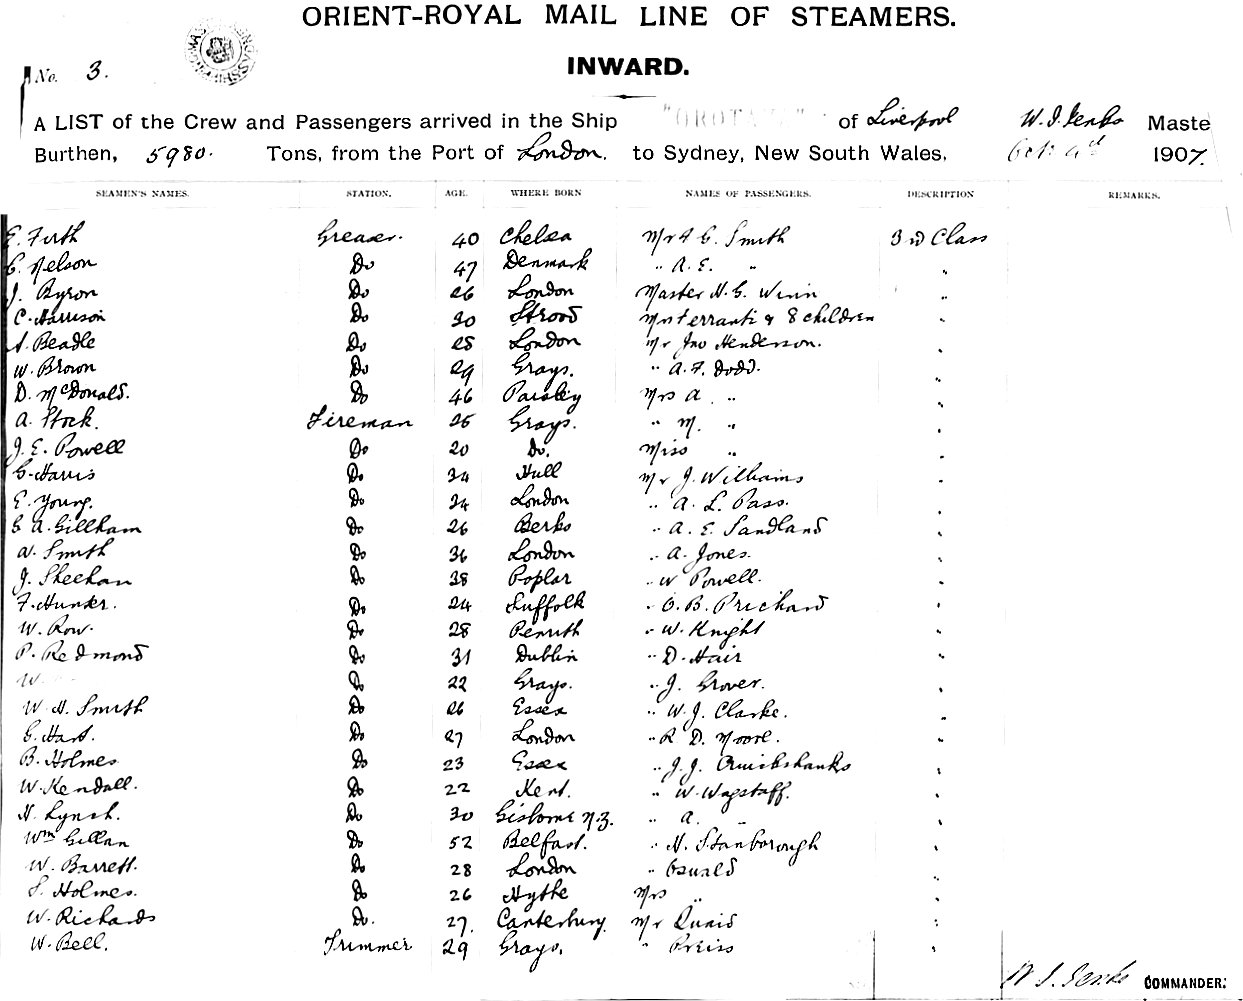 ORIENT-ROYAL MAIL LINE OF STEAMERS.
No. 3.
INWARD.
A LIST of the Crew and Passengers arrived in the Ship "OROTAVA" of Liverpool W.J. Jenks Maste
Burthen, 5980. Tons, from the Port of London. to Sydney, New South Wales, Oct 1907.
SEAMEN'S NAMES. STATION. AGE. WHERE BORN NAMES OF PASSENGERS. DESCRIPTION REMARKS.
E. Firth Greaser. 40 Chelsea Mr A G. Smith 3rd Class
C. Nelson Do 47 Denmark " A.E. " "
J. Byron Do 26 London Master H.G. Winn "
C. Harrison Do 30 Strood Mrs Ferranti & 8 children "
A. Beadle Do 28 London Mr Jno Henderson. "
W. Brown Do 29 Grays. " A.F. Dodd. "
D. McDonald. Do 46 Paisley Mrs A. " "
A. Stock. Fireman 25 Grays. " M. " "
J.E. Powell Do 20 Do. Miss " "
G. Harris Do 34 Hull Mr J. Williams "
E. Young. Do 34 London " A. L. Pass. "
G A. Gillham Do 26 Berks " A. E. Sandland "
W. Smith Do 36 London " A. Jones. "
J. Sheehan Do 38 Poplar " W Powell. "
F. Hunter. Do 24 Suffolk " O. B. Prichard "
W. Row. Do 28 Penrith " W. Knight "
P. Redmond Do 31 Dublin " D. Hair "
W. Do 22 Grays. " J. Grover. "
W. H. Smith Do 26 Essex " W. J. Clarke. "
G. Hart. Do 27 London " R D. Moore. "
B. Holmes Do 23 Essex " J.J. Cruickshanks "
W. Kendall. Do 22 Kent. " W. Wagstaff. "
H. Lynch. Do 30 Gisborne N.Z. " A. " "
Wm Gillan Do 52 Belfast. " H. Stanborough "
W. Barrett. Do 28 London " Oswald "
S. Holmes. Do 26 Hythe Mrs " "
W. Richards Do. 27. Canterbury. Mr Quaid "
W. Bell. Trimmer 29 Grays. " Preiss "
W J. Jenks COMMANDER.